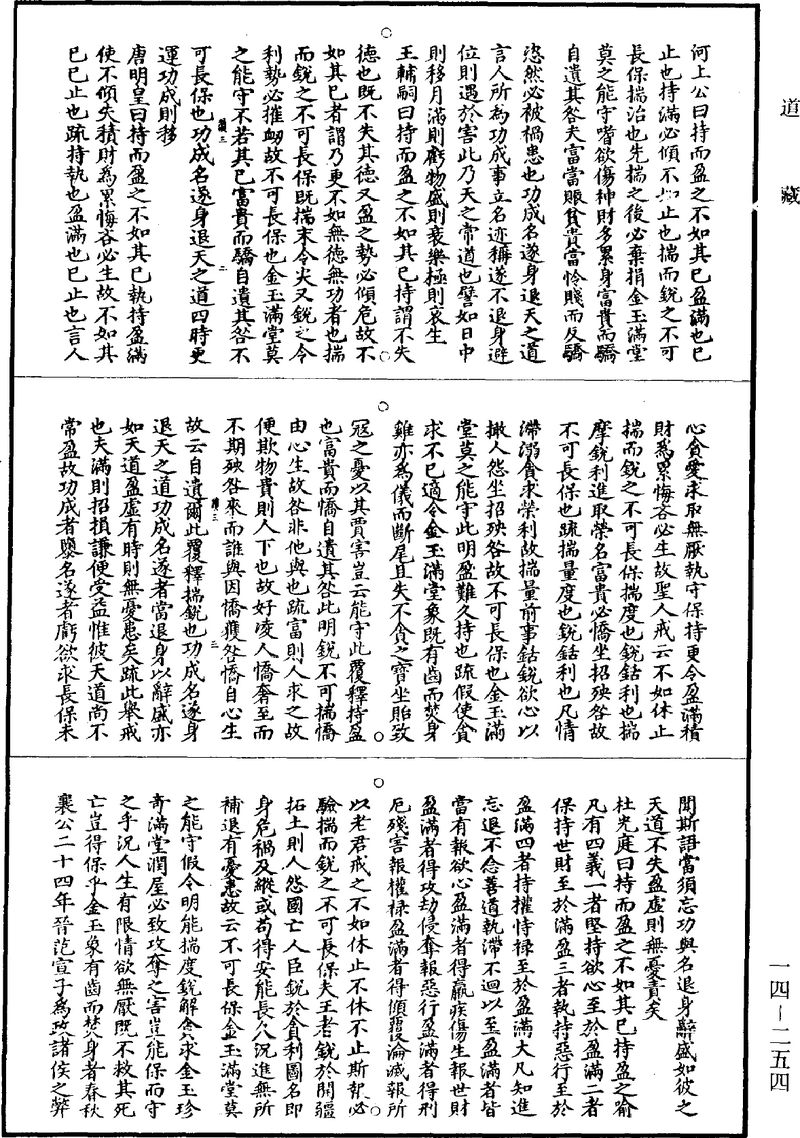 道藏
河上公曰持而盈之不如其已盈滿也已
止也持滿必傾不如止也揣而銳之不可
長保揣治也先揣之後必棄捐金玉滿堂
莫之能守嗜欲傷神財多累身富貴而驕
自遺其咎夫富當賑貧貴當怜賤而反驕
恣然必被禍患也功成名遂身退天之道
言人所為功成事立名迹稱遂不退身避
位則遇於害此乃天之常道也譬如日中
則移月滿則虧物盛則衰樂極則哀生
王輔嗣曰持而盈之不如其已持謂不失
德也既不失其德又盈之勢必傾危故不
如其已者謂乃更不如無德無功者也揣
而銳之不可長保既揣末令尖又銳之令
利勢必摧衂故不可長保也金玉滿堂莫
之能守不若其已富貴而驕自遺其咎不
可長保也功成名遂身退天之道四時更
運功成則移
唐明皇曰持而盈之不如其已執持盈滿
使不傾失積財為累悔吝必生故不如其
已已止也疏持執也盈滿也已止也言人
心貪愛求取無厭執守保持更令盈滿積
財為累悔吝必生故聖人戒云不如休止
揣而銳之不可長保揣度也銳銛利也揣
摩銳利進取榮名富貴必憍坐招殃咎故
不可長保也疏揣量度也銳銛利也凡情
滯溺貪求榮利故揣量前事銛銳欲心以
撖人怨坐招殃咎故不可長保也金玉滿
堂莫之能守此明盈難久持也疏假使貪
求不已適令金玉滿堂象既有齒而焚身
雞亦為儀而斷尾且失不貪之寶坐貽致
寇之憂以其賈害豈云能守此覆釋持盈
也富貴而憍自遺其咎此明銳不可揣憍
由心生故咎非他與也疏富則人求之故
便欺物貴則人下也故好凌人憍奢至而
不期殃咎來而誰與因憍獲咎憍自心生
故云自遺爾此覆釋揣銳也功成名遂身
退天之道功成名遂者當退身以辭盛亦
如天道盈虛有時則無憂患矣疏此舉戒
也夫滿則招損謙便受益惟彼天道尚不
常盈故功成者隳名遂者虧欲求長保未
聞斯語當須忘功與名退身辭盛如彼之
天道不失盈虛則無憂責矣
杜光庭曰持而盈之不如其已持盈之喻
凡有四義一者堅持欲心至於盈滿二者
保持世財至於滿盈三者執持惡行至於
盈滿四者持權恃祿至於盈滿大凡知進
忘退不念善道執滯不迴以至盈滿者皆
當有報欲心盈滿者得羸疾傷生報世財
盈滿者得攻劫侵奪報惡行盈滿者得刑
厄殘害報權祿盈滿者得傾覆淪滅報所
以老君戒之不如休止不休不止斯報必
驗揣而銳之不可長保夫王者銳於開疆
拓土則人怨國亡人臣銳於貪利圖名即
身危禍及縱或苟得安能長久況進無所
補退有憂患故云不可長保金玉滿堂莫
之能守假令明能揣度銳解貪求金玉珍
奇滿堂潤屋必致攻奪之害豈能保而守
之乎況人生有限情欲無厭既不救其死
亡豈得保乎金玉象有齒而焚身者春秋
襄公二十四年晉范宣子為政諸侯之弊
一四—二五四